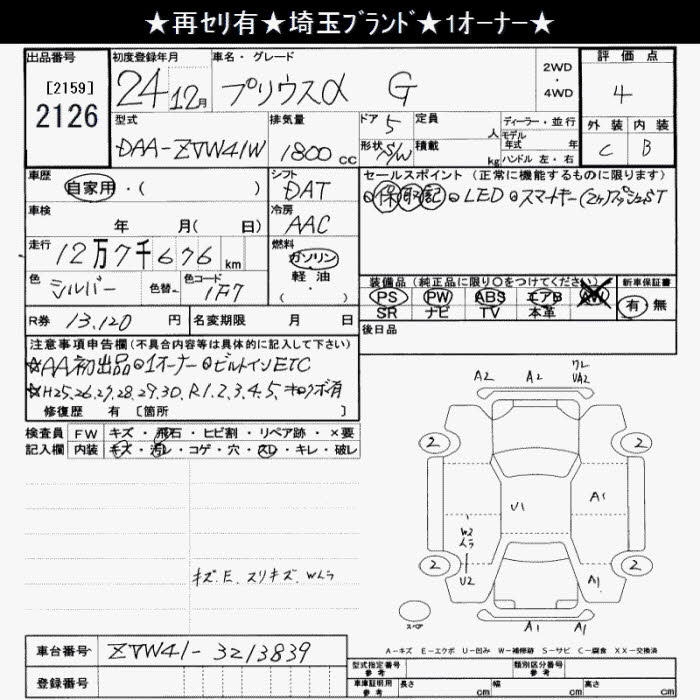 ★再セリ有★埼玉ブランド★1オーナー★
出品番号 初度登録年月 車名・グレード 2WD・4WD 評価点
[2159]
2126
24年12月 プリウスα G 4
型式 排気量 ドア 5 定員 人 ディーラー・並行 外装 内装
DAA-ZVW41W 1800cc 形状 S/W 積載 kg モデル年式 年 C B
ハンドル 左・右
車歴 シフト セールスポイント (正常に機能するものに限ります)
自家用・( ) DAT 保 取 記 LED スマートキー(2ヶ)プッシュST
車検 冷房
年 月( 日) AAC
走行 燃料
12万7千676km ガソリン
軽・油
・( )
色 シルバー 色替 色コード 1F7
装備品 (純正品に限り○をつけてください) 新車保証書
PS PW ABS エアB AW 有・無
SR ナビ TV 本革
R券 13,120 円 名変期限 月 日 後日品
注意事項申告欄(不具合内容等は具体的に記入して下さい)
☆AA初出品 1オーナー ビルトインETC
☆H25.26.27.28.29.30.R1.2.3.4.5.キロクボ有
修復歴 有 [箇所 ]
検査員 FW キズ・飛石・ヒビ割・リペア跡・×要
記入欄 内装 キズ・汚レ・コゲ・穴・スレ・キレ・破レ
A2 A2 ワレ
UA2
2 2
U1 A1
W2
ムラ
2 2
U2 A1
キズ.E.スリキズ.Wムラ
スペア A1 A1
A-キズ E-エクボ U-凹み W-補修跡 S-サビ C-腐食 XX-交換済
車台番号 ZVW41-3213839
登録番号
型式指定番号 参考 類別区分番号 参考
車庫証明用 参考 長さ cm 幅 cm 高さ cm